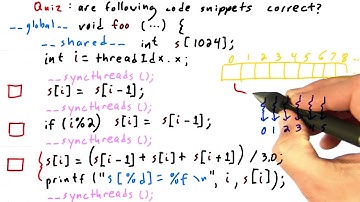 Quiz: are following code snippets correct?
__global__ void foo (...) {
__shared__ int s[1024];
int i = threadIdx.x;
__syncthreads();
s[i] = s[i-1];
__syncthreads();
if (i%2) s[i] = s[i-1];
__syncthreads();
s[i] = (s[i-1] + s[i] + s[i+1]) / 3.0;
printf ("s[%d]=%f\n", i, s[i]);
__syncthreads();
0 1 2 3 4 5 6 7 8 ...
0 1 2 3 4 5